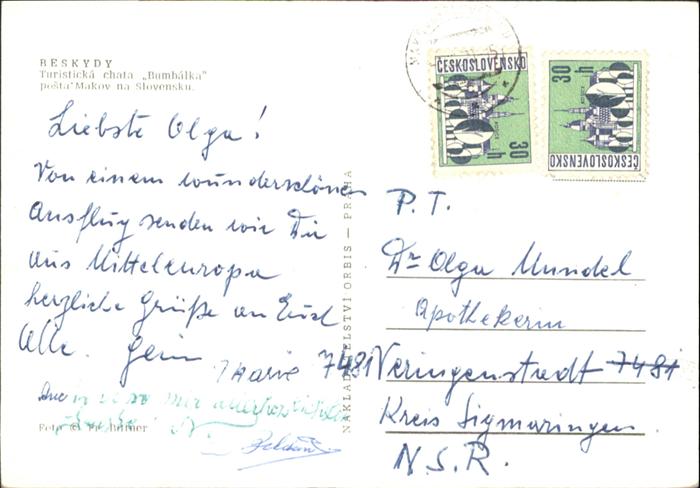 BESKYDY
Turistická chata „Bumbálka"
pošta Makov na Slovensku.
Liebste Olga!
Von einem wunderschönen
Ausflug senden wir Dir
aus Mitteleuropa
herzliche Grüße an Euch
Alle.
Marie
Foto
NAKLADATELSTVÍ ORBIS — PRAHA
ČESKOSLOVENSKO
30 h
ČESKOSLOVENSKO
30 h
P. T.
Dr Olga Mundel
Apothekerin
7481 Veringenstadt 7481
Kreis Sigmaringen
N.S.R.